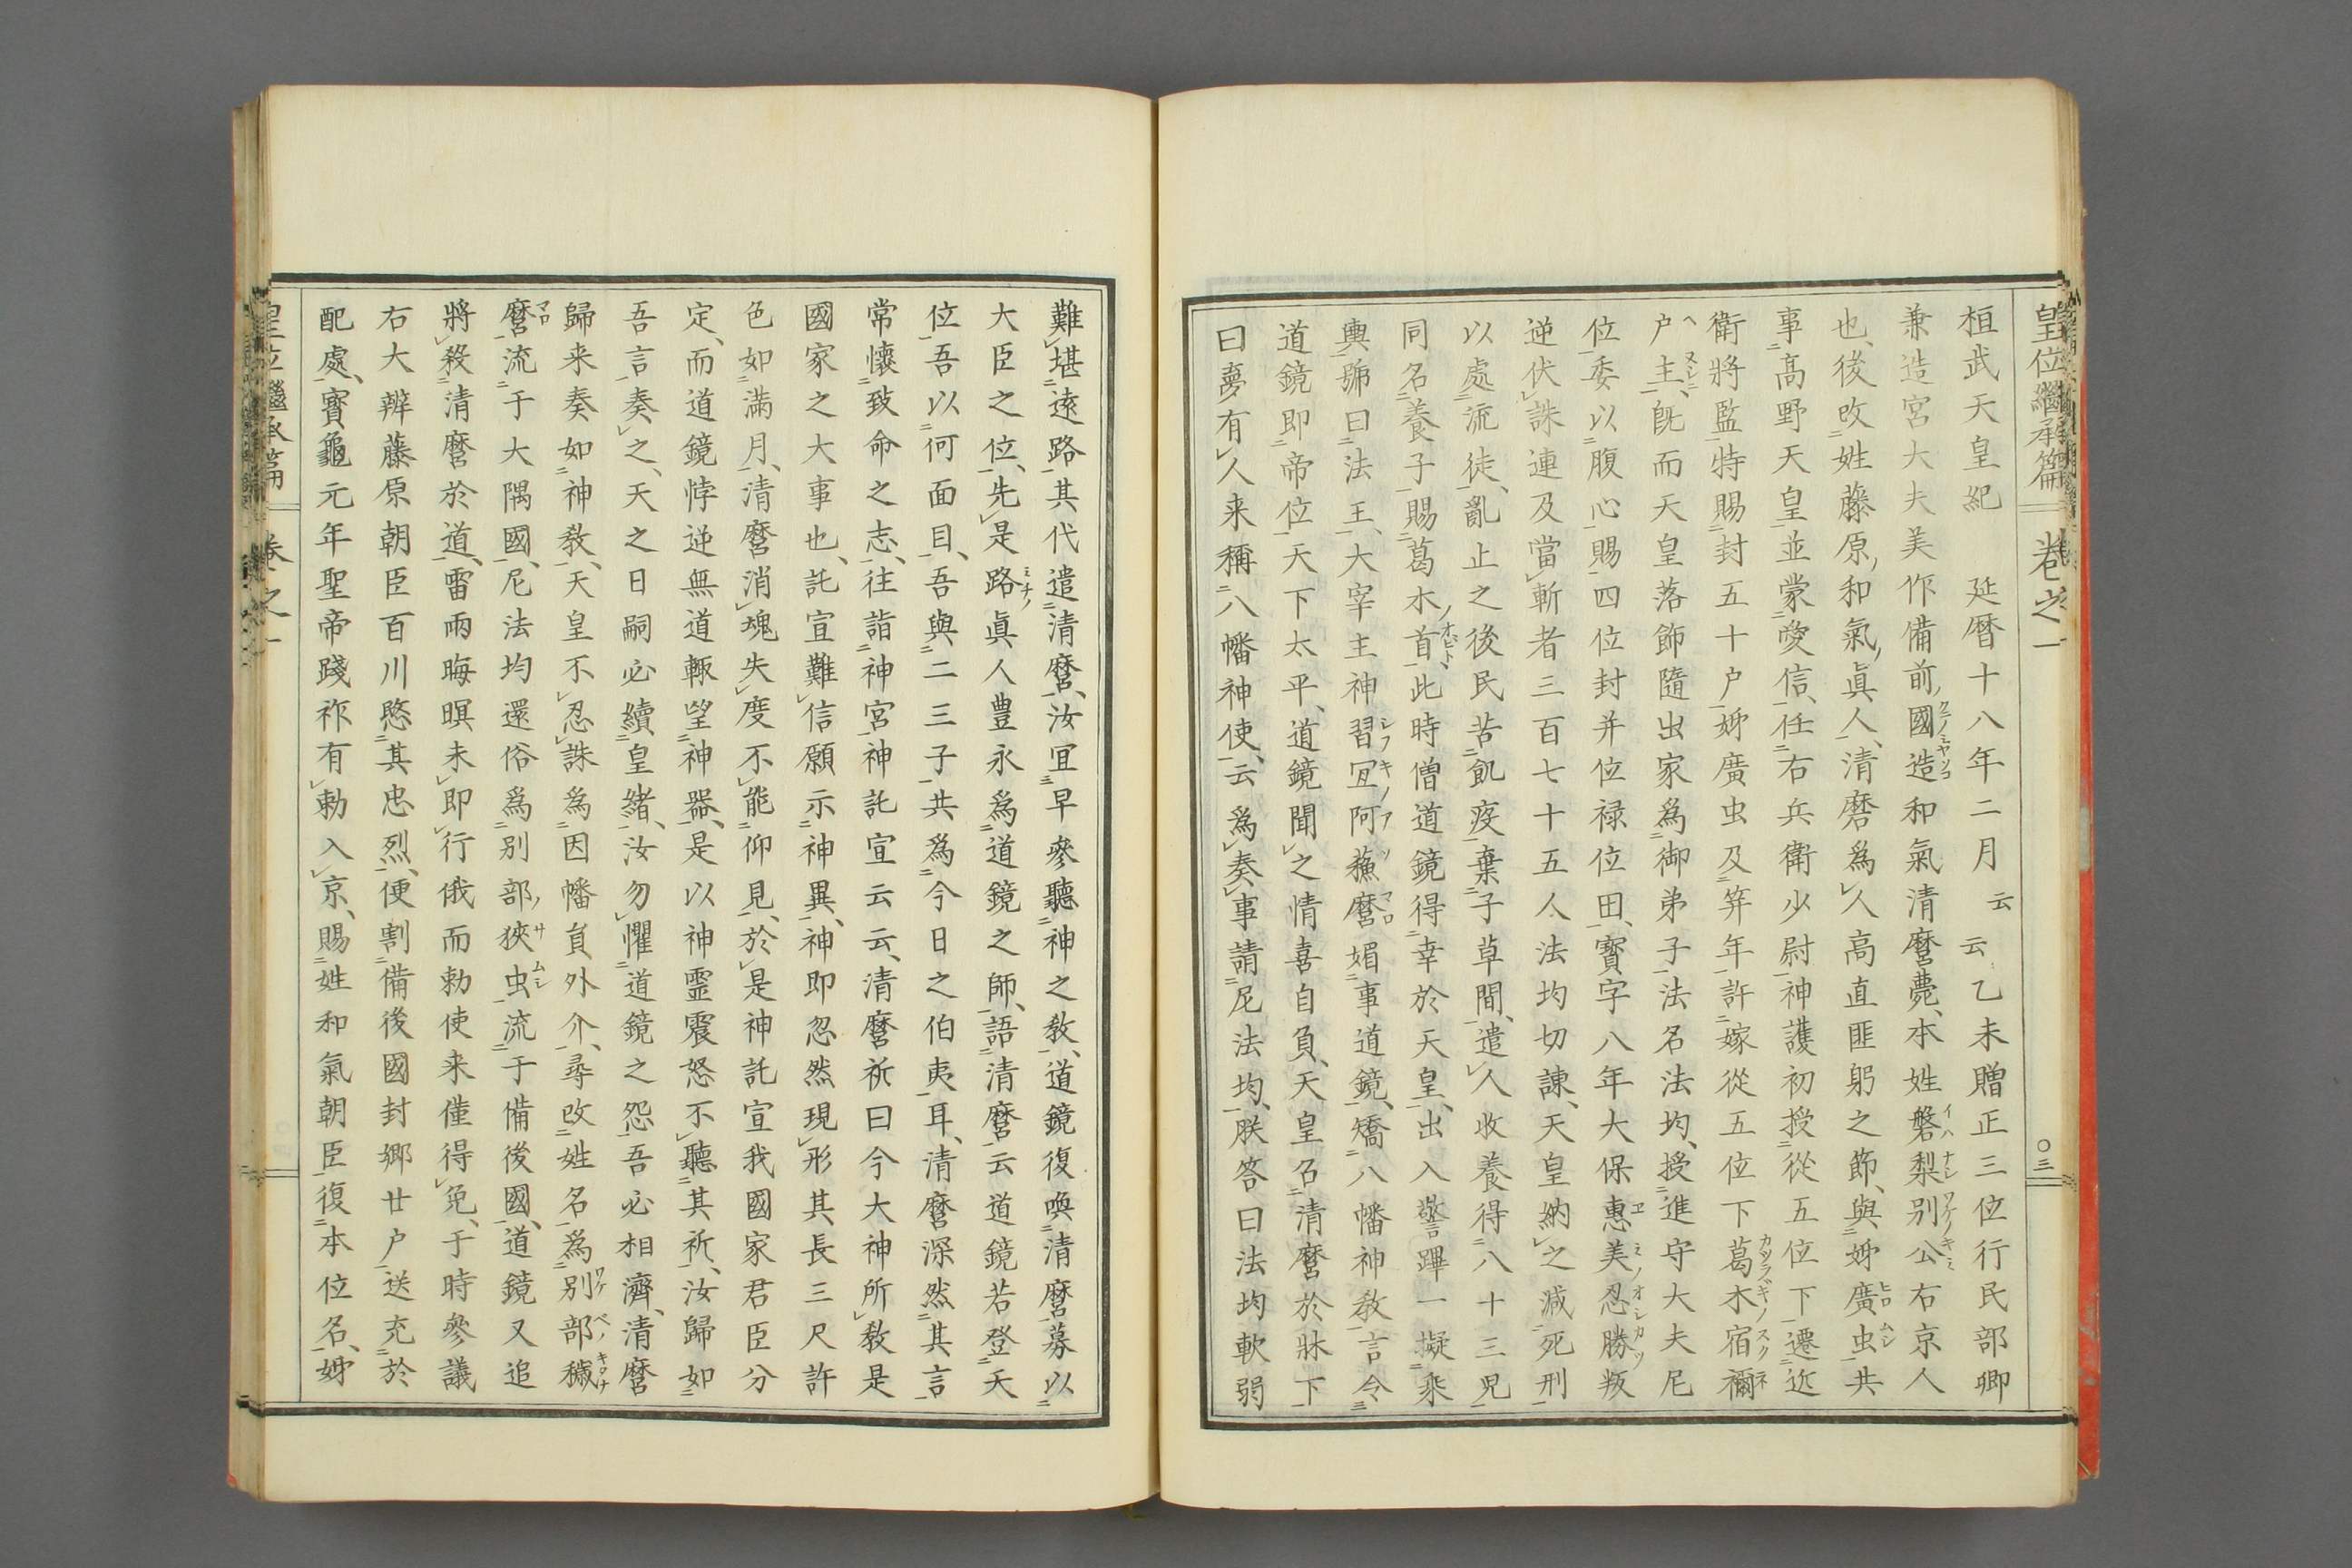 皇位繼承篇 卷之一 〇三
桓武天皇紀 延暦十八年二月云云乙未贈正三位行民部卿
兼造宮大夫美作備前國造和氣清麿薨、本姓磐梨別公右京人
也、後改姓藤原和氣眞人、清磨爲人高直匪躬之節、與姊廣虫共
事高野天皇並蒙愛信、任右兵衛少尉神護初授從五位下遷近
衛將監特賜封五十户姊廣虫及笄年許嫁從五位下葛木宿禰
户主、旣而天皇落飾隨出家爲御弟子法名法均、授進守大夫尼
位委以腹心賜四位封并位禄位田、寳字八年大保惠美忍勝叛
逆伏誅連及當斬者三百七十五人法均切諫、天皇納之減死刑
以處流徒、亂止之後民苦飢疫棄子草間、遣人收養得八十三兒
同名養子賜葛木首、此時僧道鏡得幸於天皇、出入警蹕一擬乘
輿號曰法王、大宰主神習宜阿蘓麿媚事道鏡、矯八幡神教言令
道鏡即帝位天下太平、道鏡聞之情喜自負、天皇召清麿於牀下
曰夢有人来稱八幡神使、云爲奏事請尼法均、朕答曰法均軟弱
難堪遠路其代遣清麿、汝宜早參聽神之教、道鏡復喚清麿募以
大臣之位、先是路眞人豊永爲道鏡之師、語清麿云道鏡若登天
位吾以何面目、吾與二三子共爲今日之伯夷耳、清麿深然其言
常懷致命之志、往詣神宮神託宣云云、清麿祈曰今大神所教是
國家之大事也、託宣難信願示神異、神即忽然現形其長三尺許
色如滿月、清麿消魂失度不能仰見、於是神託宣我國家君臣分
定、而道鏡悖逆無道輙望神器、是以神霊震怒不聽其祈、汝歸如
吾言奏之、天之日嗣必續皇緒、汝勿懼道鏡之怨吾必相濟、清麿
歸来奏如神教、天皇不忍誅爲因幡員外介、尋改姓名爲別部穢
麿流于大隅國、尼法均還俗爲別部狹虫流于備後國、道鏡又追
將殺清麿於道、雷雨晦暝未即行俄而勅使来僅得免、于時參議
右大辨藤原朝臣百川愍其忠烈、便割備後國封郷廿户送充於
配處、寳龜元年聖帝踐祚有勅入京、賜姓和氣朝臣復本位名、姊
皇位繼承篇 卷之一